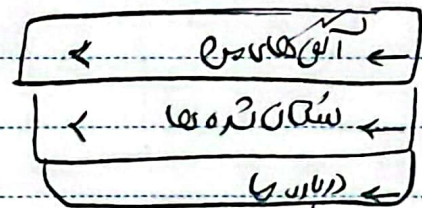 آگهی های من
نشان شده ها
درباره ما